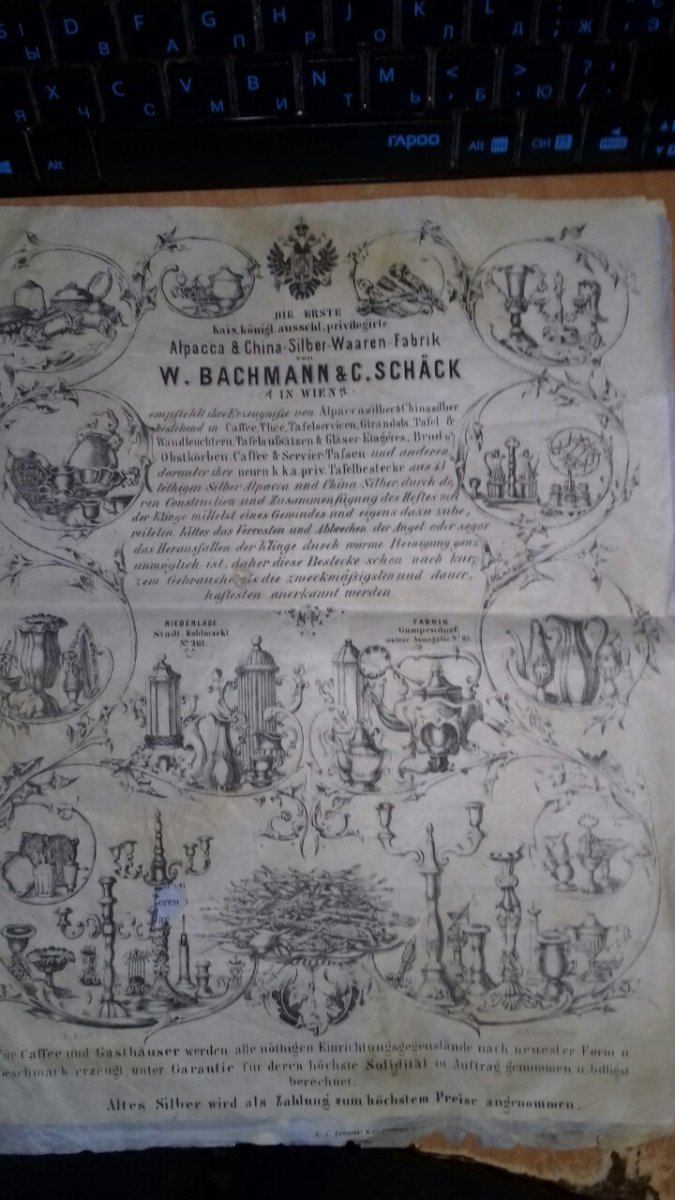 S Ы
D В
F А
G П
H Р
J О
K Л
L Д
: ; Ж
" ' Э
Я
X Ч
C С
V М
B И
N Т
M Ь
< , Б
> . Ю
? /
Alt
rapoo
Alt
Ctrl
DIE ERSTE
kais. königl. ausschl. privilegirte
Alpacca & China-Silber-Waaren-Fabrik
von
W. BACHMANN & C. SCHÄCK
IN WIEN
empfiehlt ihre Erzeugnisse von Alpaccasilber & Chinasilber
bestehend in Caffee, Thee, Tafelservicen, Girandols, Tafel &
Wandleuchtern, Tafelaufsätzen & Gläser-Etagéres, Brod &
Obstkörben, Caffee & Servier-Tassen und anderen,
darunter ihre neuen k.k.a. priv. Tafelbestecke aus 13
löthigen Silber Alpacca und China-Silber, durch de,
ren Construction und Zusammenfügung des Heftes mit
der Klinge mittelst eines Gewindes und eigens dazu zube,
reiteten Kittes das Verrosten und Abbrechen der Angel oder sogar
das Herausfallen der Klinge durch warme Reinigung ganz
unmöglich ist, daher diese Bestecke schon nach kur,
zem Gebrauche als die zweckmäßigsten und dauer,
haftesten anerkannt werden.
NIEDERLAGE
Stadt, Kohlmarkt
No 261.
FABRIK
Gumpendorf,
untere Annagasse No
eren
für Caffee und Gasthäuser werden alle nöthigen Einrichtungsgegenstände nach neuester Form u
Geschmark erzeugt, unter Garantie für deren höchste Solidität in Auftrag genommen u. billigst
berechnet.
Altes Silber wird als Zahlung zum höchstem Preise angenommen.